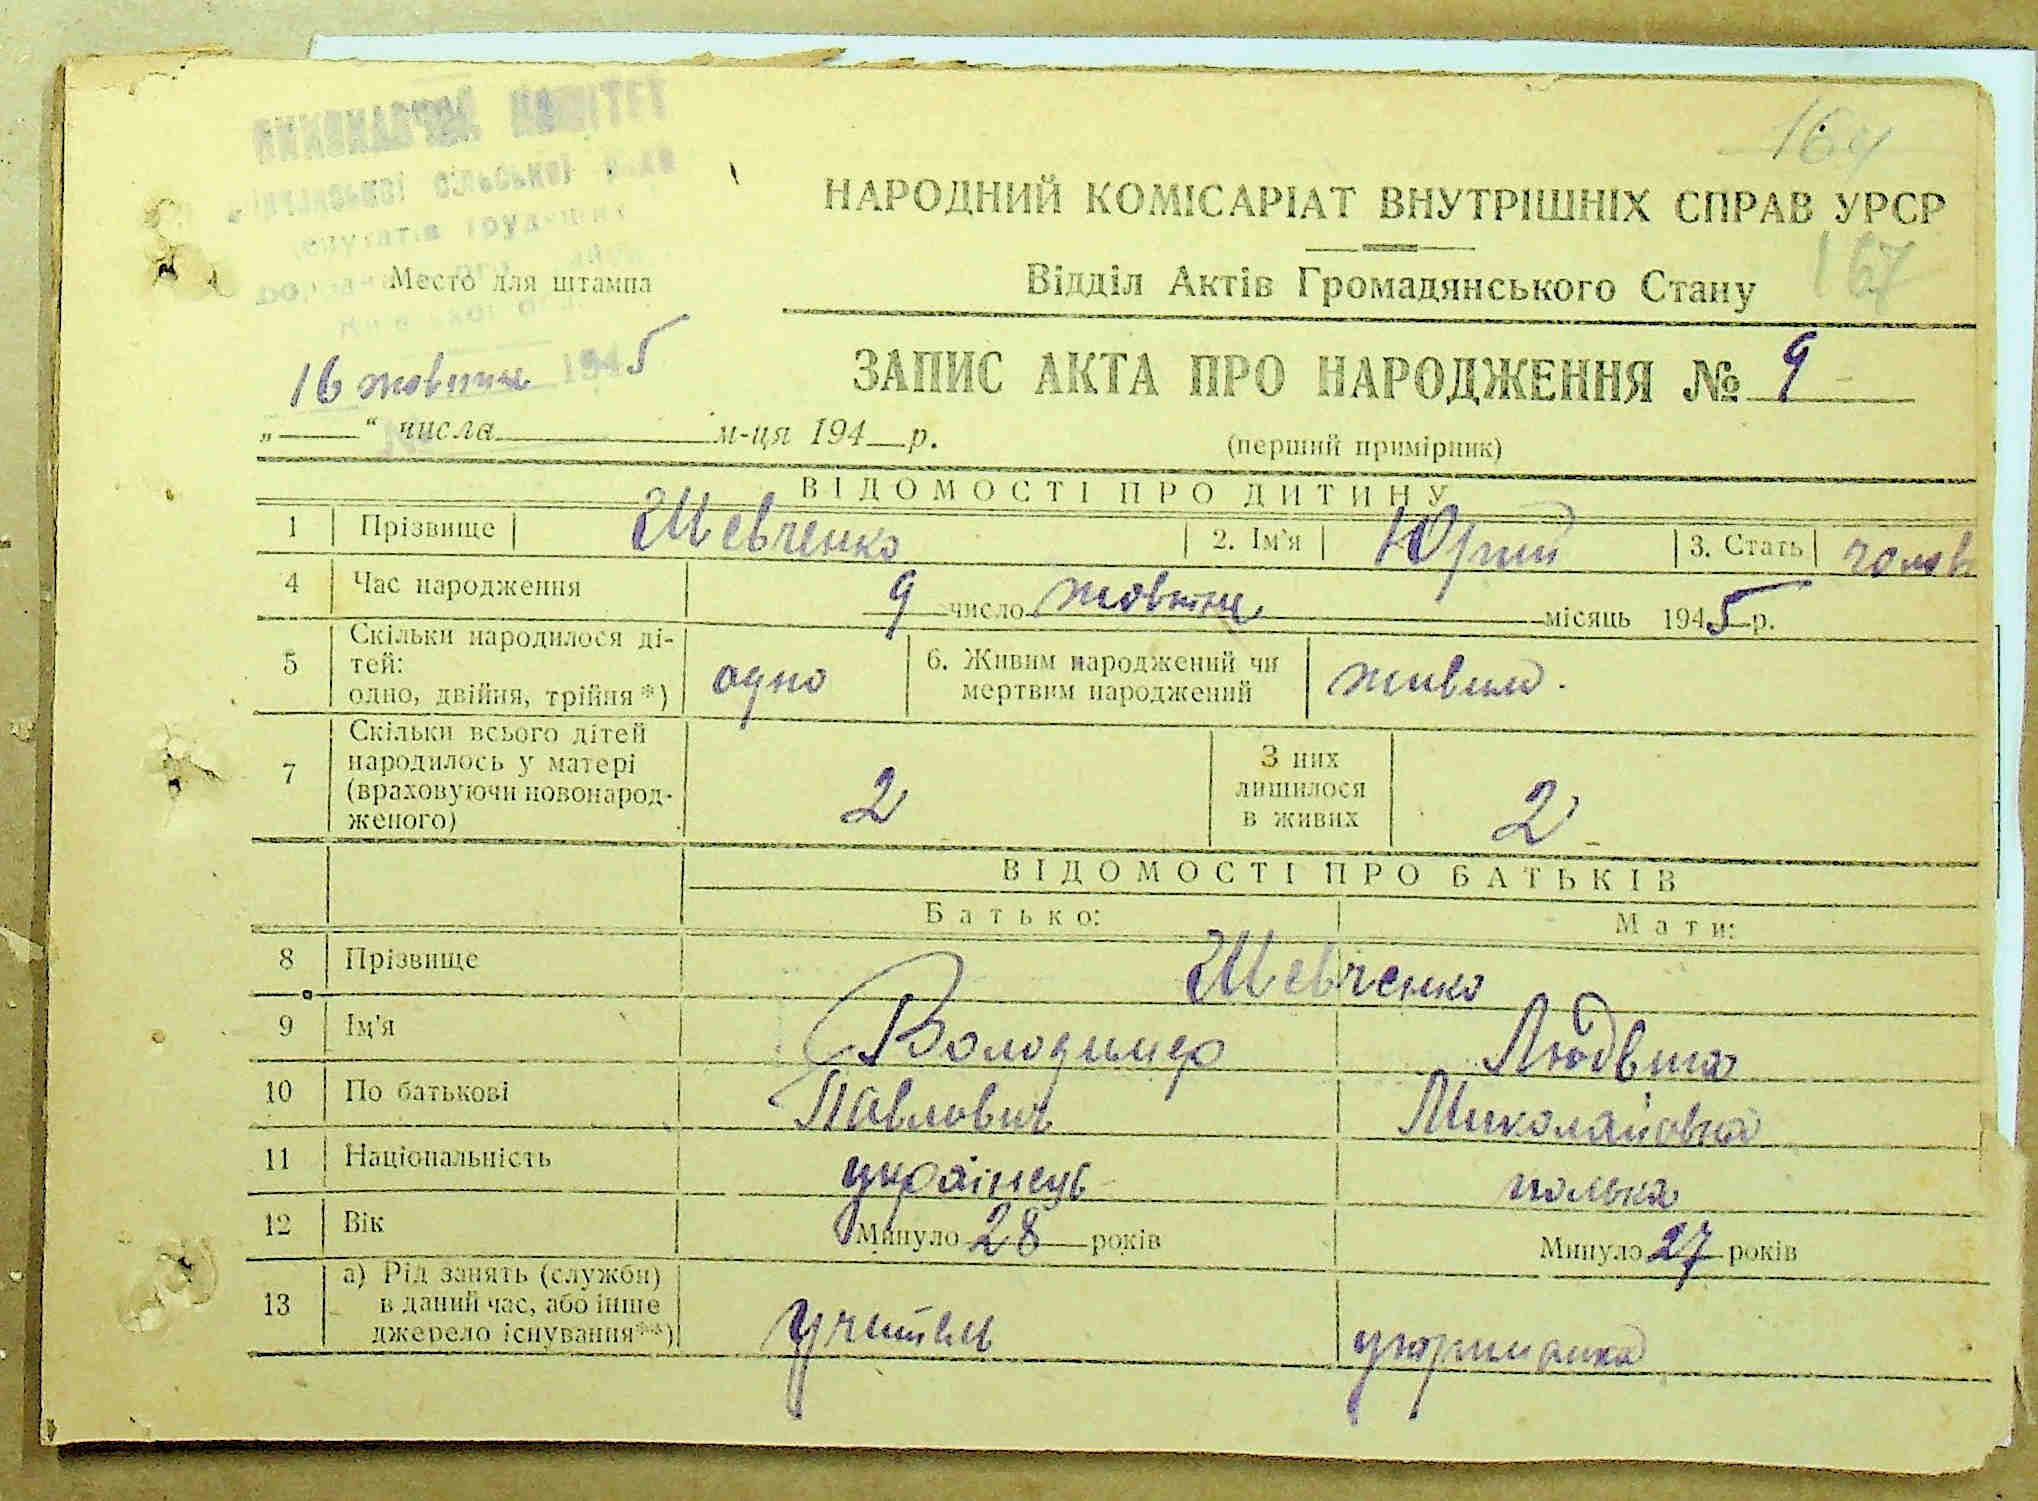 ВИКОНАВЧИЙ КОМІТЕТ
сільської ради
164
НАРОДНИЙ КОМІСАРІАТ ВНУТРІШНІХ СПРАВ УРСР
167
Место для штампа
Відділ Актів Громадянського Стану
16 жовтня 1945
ЗАПИС АКТА ПРО НАРОДЖЕННЯ № 9
„ “ числа м-ця 194 р.
(перший примірник)
ВІДОМОСТІ ПРО ДИТИНУ
1 Прізвище Шевченко 2. Ім'я Юрий 3. Стать чолов
4 Час народження 9 число жовтня місяць 1945 р.
5 Скільки народилося ді-
тей:
одно, двійня, трійня*) одно 6. Живим народжений чи
мертвим народжений живим.
7 Скільки всього дітей
народилось у матері
(враховуючи новонарод-
женого) 2 З них
лишилося
в живих 2
ВІДОМОСТІ ПРО БАТЬКІВ
Батько: Мати:
8 Прізвище Шевченко
9 Ім'я Володимир Людвига
10 По батькові Павлович Миколаївна
11 Національність українець полька
12 Вік Минуло 28 років Минуло 27 років
13 а) Рід занять (служби)
в даний час, або інше
джерело існування**) Учитель утриманка